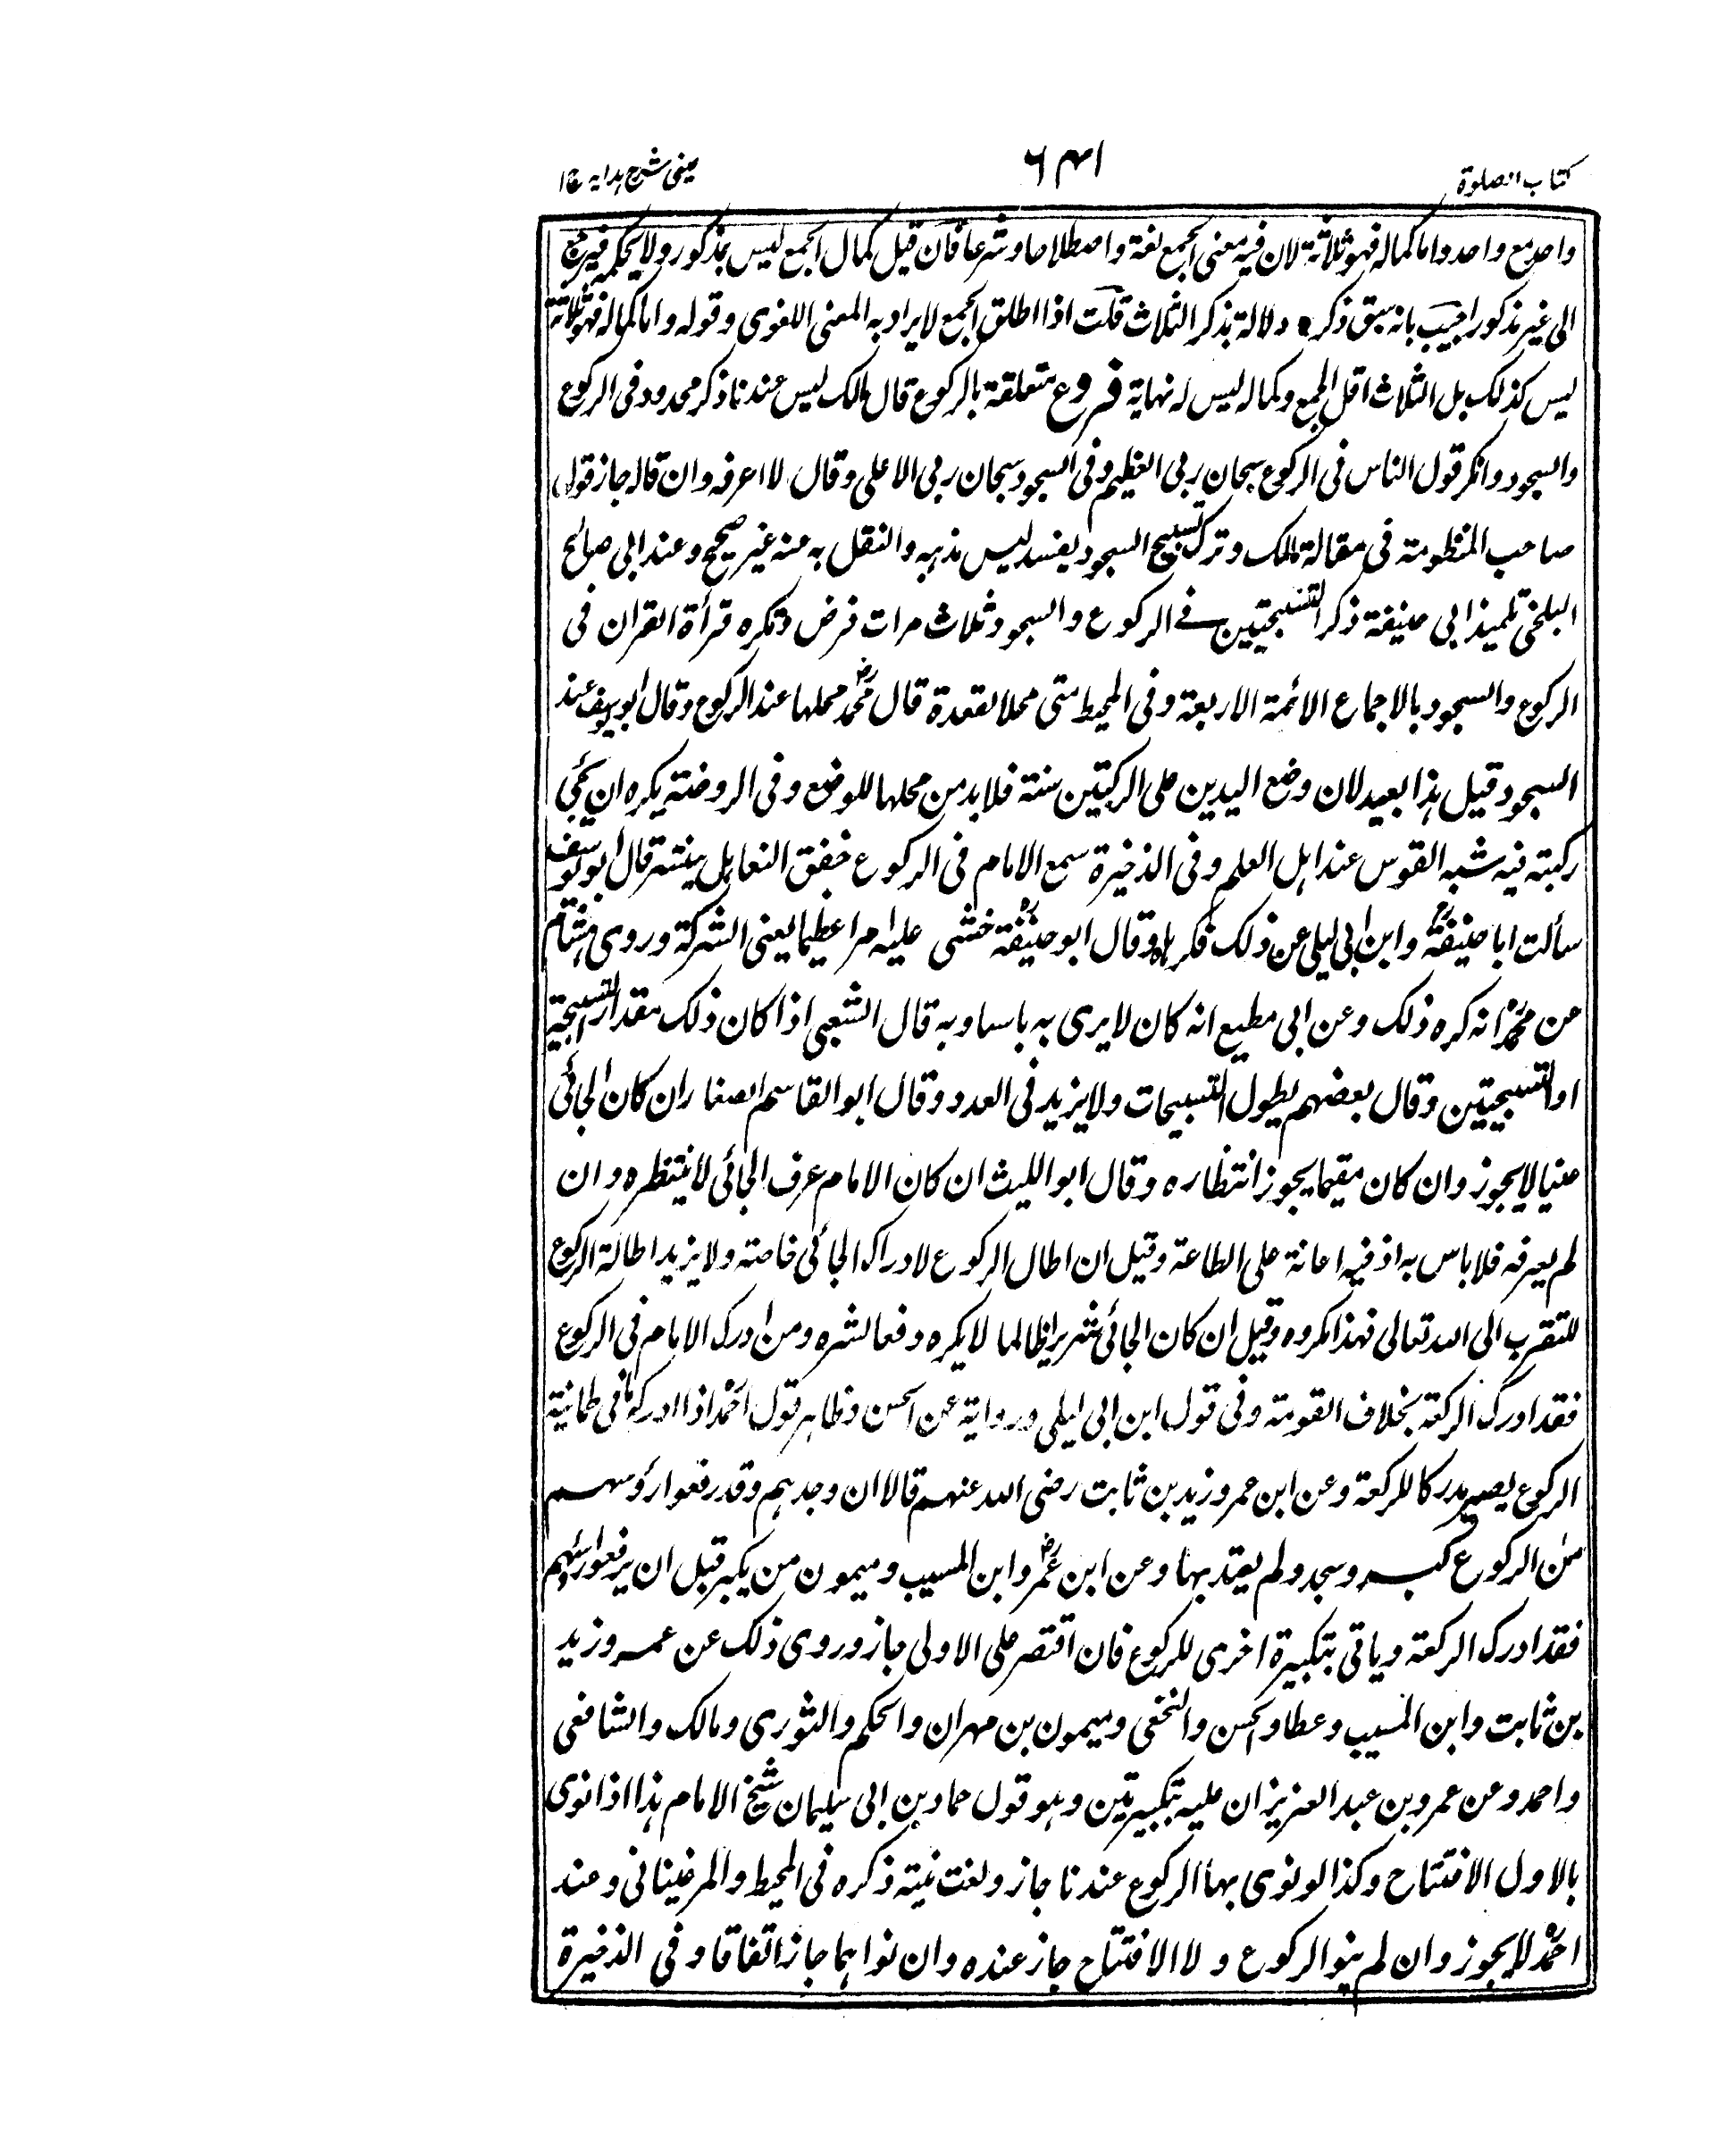 كتاب الصلوة
٦٤١
عينى شرح هدايه ج ١
واحد مع واحد واما كماله فهو ثلاثة لان فيه معنى الجمع لغة واصطلاحا وشرعا فان قيل كمال الجمع ليس بمذكور ولا يحكم
الى غير مذكور اجيب بانه سبق ذكره دلالة بذكر الثلاث قلت اذا اطلق الجمع لا يراد به المعنى اللغوى وقوله واما كماله فهو ثلاثة
ليس كذلك بل الثلاث اقل الجمع وكماله ليس له نهاية فروع متعلقة بالركوع قال مالك ليس عندنا ذكر محدود فى الركوع
والسجود وانكر قول الناس فى الركوع سبحان ربى العظيم وفى السجود سبحان ربى الاعلى وقال لا اعرفه وان قاله جاز قول
صاحب المنظومة فى مقالة مالك وترك تسبيح السجود يفسد ليس مذهبه والنقل به عنه غير صحيح وعند ابى صالح
البلخى تلميذ ابى حنيفة ذكر التسبيحتين فے الركوع والسجود ثلاث مرات فرض وتكره قرأة القران فى
الركوع والسجود بالاجماع الائمة الاربعة وفى المحيط متى محلا لقعدة قال محمدرح محملها عند الركوع وقال ابو يوسف عند
السجود قيل هذا بعيد لان وضع اليدين على الركبتين سنة فلا بد من محلها للوضع وفى الروضة يكره ان يحنى
ركبته فيه شبه القوس عند اهل العلم وفى الذخيرة سمع الامام فى الركوع خفق النعال هل ينتظر قال ابو يوسف
سألت ابا حنيفةرح وابن ابى ليلى عن ذلك فكرهاه وقال ابو حنيفةرح خشى عليه امرا عظيما يعنى الشركة وروى هشام
عن محمدرح انه كره ذلك وعن ابى مطيع انه كان لا يرى به باسا وبه قال الشعبى اذا كان ذلك مقدار التسبيحة
او التسبيحتين وقال بعضهم يطول التسبيحات ولا يزيد فى العدد وقال ابو القاسم الصفار ان كان الجائى
غنيا لا يجوز وان كان مقيما يجوز انتظاره وقال ابو الليث ان كان الامام عرف الجائى لا ينتظره وان
لم يعرفه فلا باس به اذ فيه اعانة على الطاعة وقيل ان اطال الركوع لادراك الجائى خاصة ولا يزيد اطالة الركوع
للتقرب الى الله تعالى فهذا مكروه وقيل ان كان الجائى شريرا ظالما لا يكره دفعا لشره ومن ادرك الامام فى الركوع
فقد ادرك الركعة بخلاف القومة وفى قول ابن ابى ليلى ورواية عن الحسن وظاهر قول احمدرح اذا ادركه فى طمانية
الركوع يصير مدركا للركعة وعن ابن عمر وزيد بن ثابت رضى الله عنهم قالا ان وجدهم وقد رفعوا رؤسهم
من الركوع كبر وسجد ولم يعتد بها وعن ابن عمررض وابن المسيب وميمون من يكبر قبل ان يرفعوا رأسهم
فقد ادرك الركعة وياتى بتكبيرة اخرى للركوع فان اقتصر على الاولى جاز وروى ذلك عن عمر وزيد
بن ثابت وابن المسيب وعطا والحسن والنخعى وميمون بن مهران والحكم والثورى ومالك والشافعى
واحمد وعن عمرو بن عبد العزيز ان عليه تكبيرتين وهو قول حماد بن ابى سليمان شيخ الامام هذا اذا نوى
بالاول الافتتاح وكذا لو نوى بها الركوع عندنا جاز ولغت نيته ذكره فى المحيط والمرغينانى وعند
احمدرح لا يجوز وان لم ينو الركوع ولا الافتتاح جاز عنده وان نواهما جاز اتفاقا وفى الذخيرة